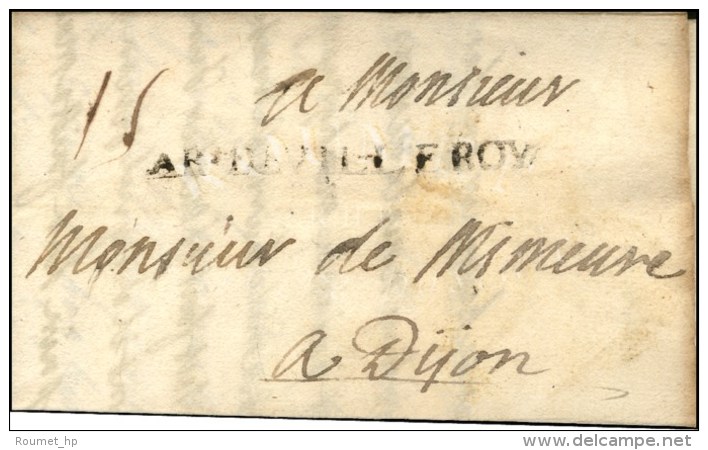 a Monsieur
15
ARM DE VILLEROY
Monsieur de Mimeure
a Dijon
Roumet_hp
www.delcampe.net